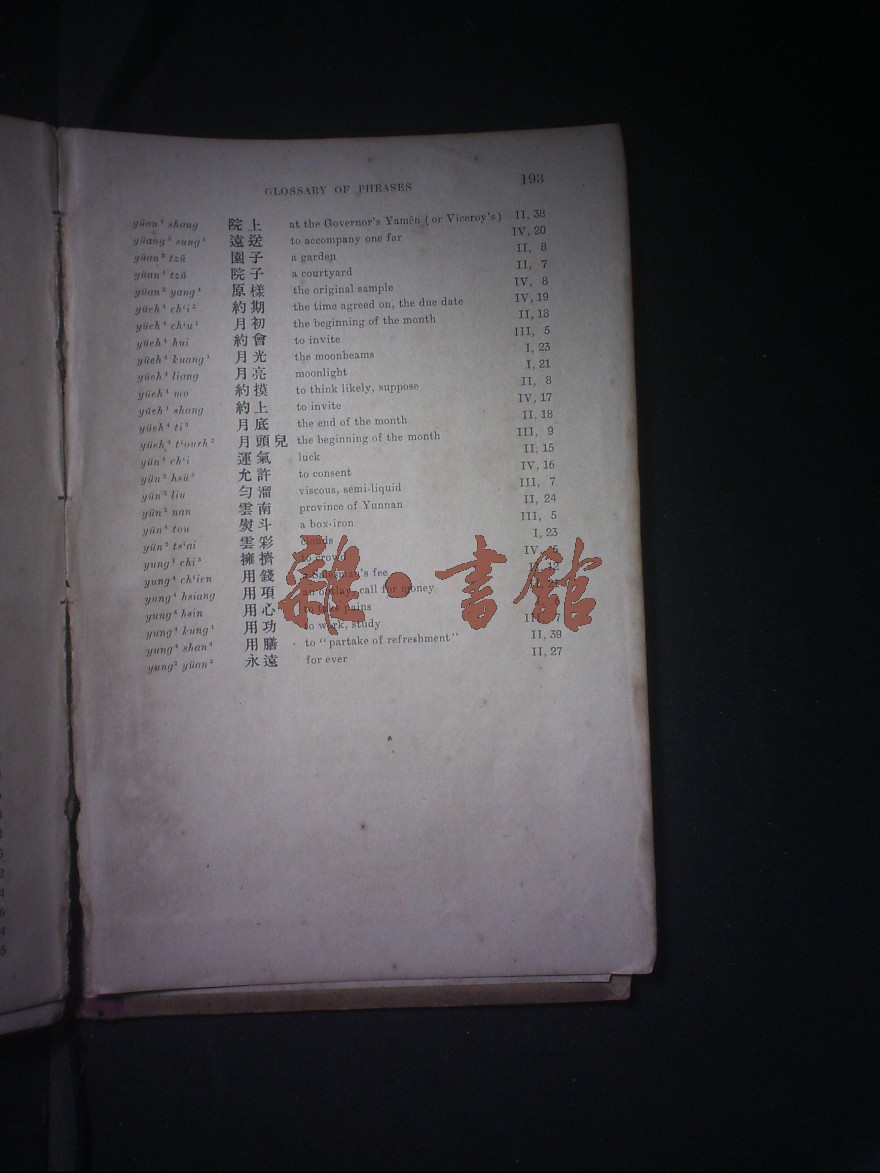 GLOSSARY OF PHRASES 193
yüan⁴ shang 院上 at the Governor's Yamên (or Viceroy's) II, 38
yüang³ sung⁴ 遠送 to accompany one far IV, 20
yüan² tzŭ 園子 a garden II, 8
yüan⁴ tzŭ 院子 a courtyard II, 7
yüan² yang⁴ 原樣 the original sample IV, 8
yüeh⁴ ch'i² 約期 the time agreed on, the due date IV, 19
yüeh⁴ ch'u¹ 月初 the beginning of the month II, 18
yüeh¹ hui 約會 to invite III, 5
yüeh⁴ kuang¹ 月光 the moonbeams I, 23
yüeh⁴ liang 月亮 moonlight I, 21
yüeh¹ mo 約摸 to think likely, suppose II, 8
yüeh¹ shang 約上 to invite IV, 17
yüeh⁴ ti³ 月底 the end of the month II, 18
yüeh⁴ t'ourh² 月頭兒 the beginning of the month III, 9
yün⁴ ch'i 運氣 luck II, 15
yün³ hsü³ 允許 to consent IV, 16
yün² liu 勻溜 viscous, semi-liquid III, 7
yün² nan 雲南 province of Yunnan II, 24
yün⁴ tou 熨斗 a box-iron III, 5
yün² ts'ai 雲彩 clouds I, 23
yung¹ chi³ 擁擠 to crowd IV,
yung⁴ ch'ien 用錢 a Salesman's fee
yung⁴ hsiang 用項 an outlay, call for money
yung⁴ hsin 用心 to take pains
yung⁴ kung¹ 用功 to work, study
yung⁴ shan⁴ 用膳 to "partake of refreshment" II, 39
yung² yüan³ 永遠 for ever II, 27
雜·書館